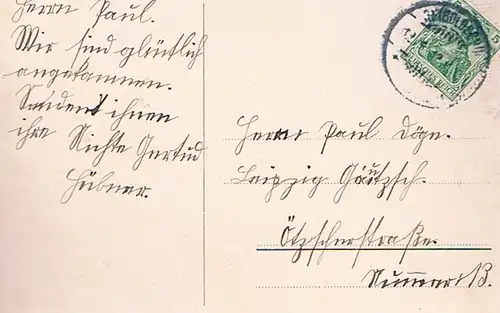 Herrn Paul.
Wir sind glütlich
angekommen.
Sendet ihnen
ihre Nichte Gertud
Hübner.
Herrn Paul Döge.
Leipzig Gautzsch.
Ötzscherstraße.
Nummer 8.